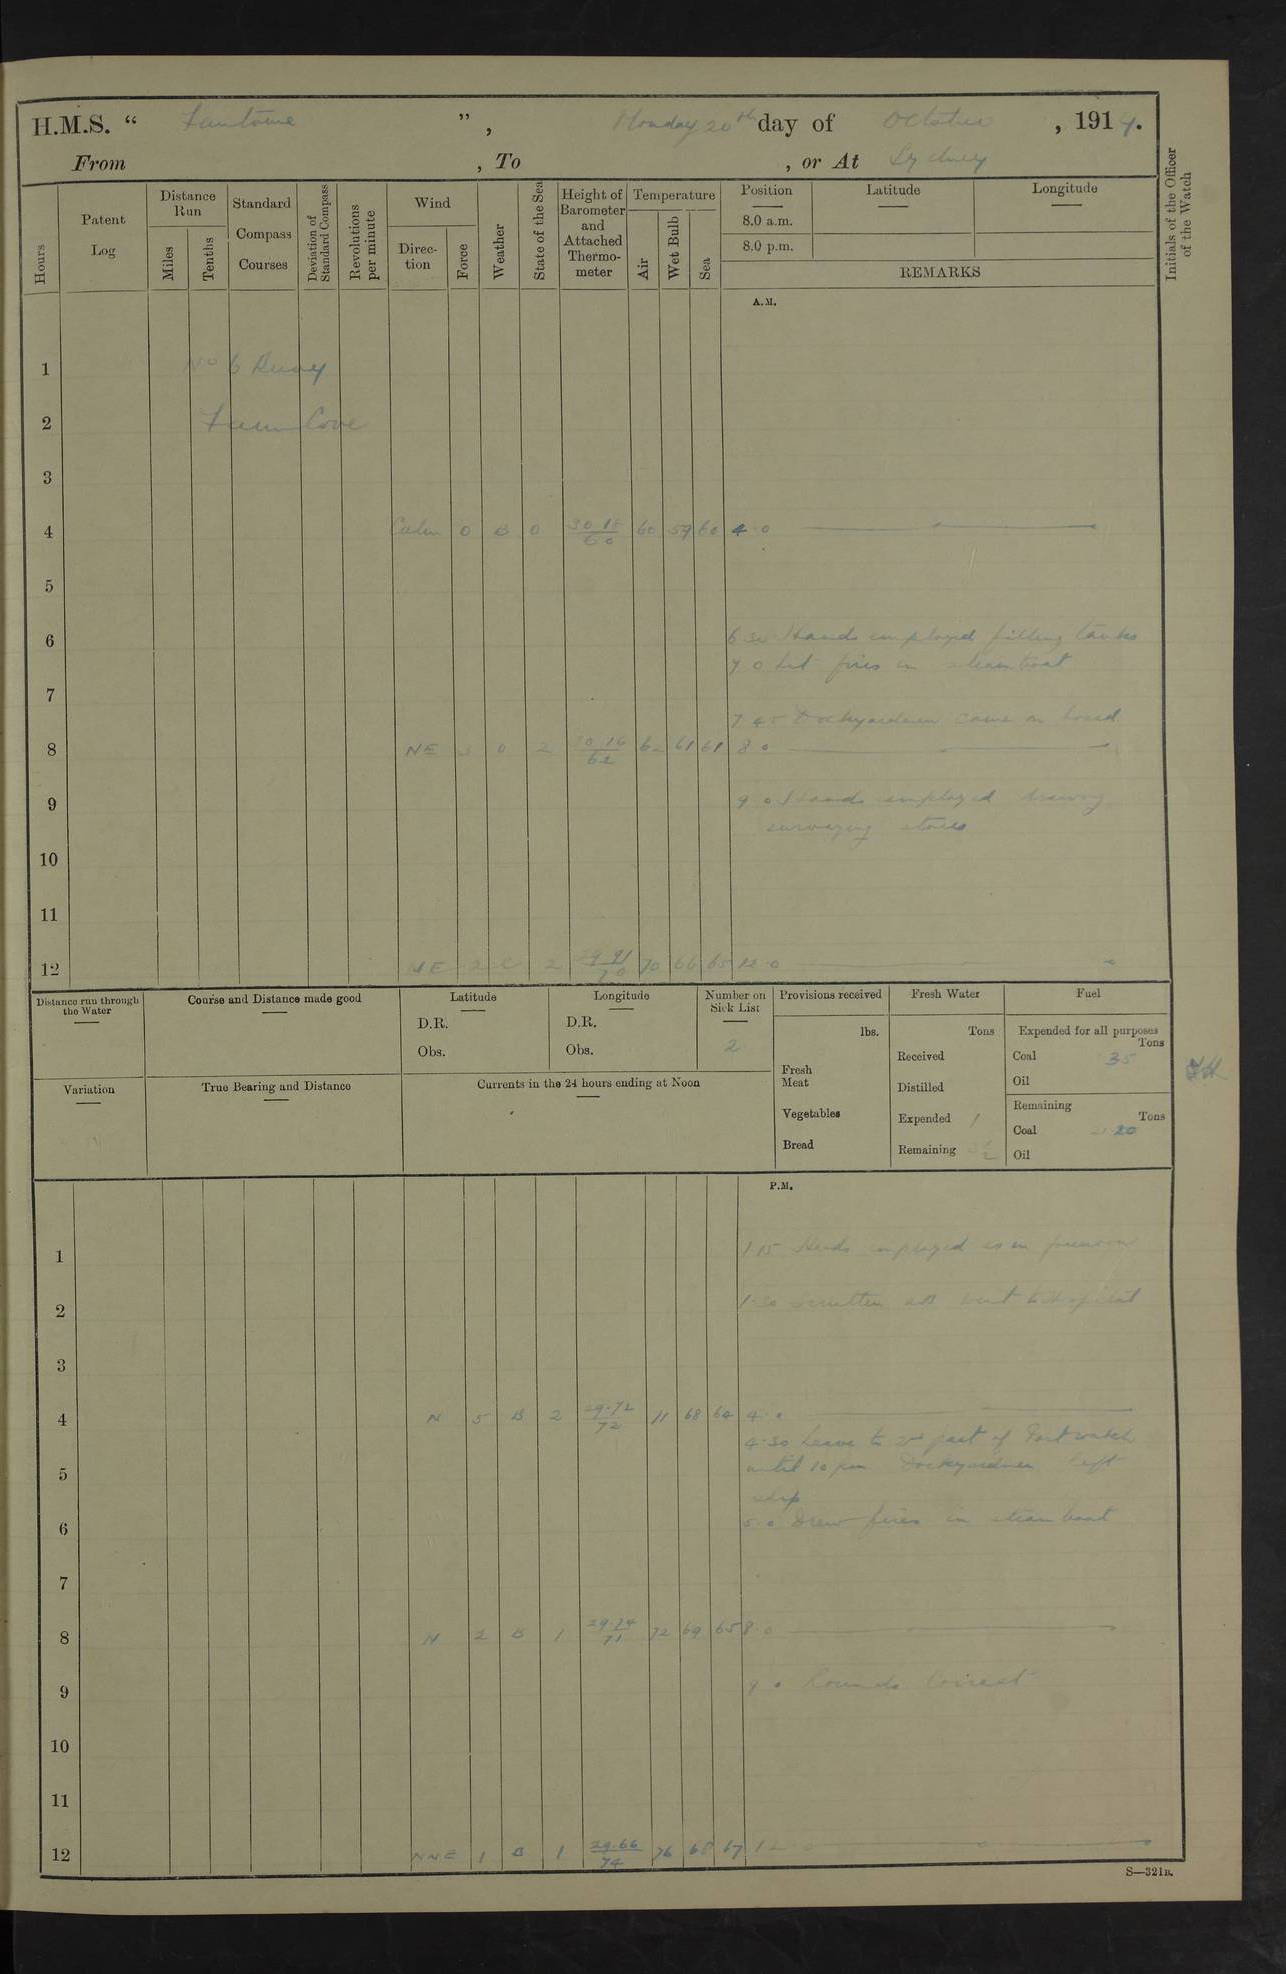 H.M.S. “ Fantome ” , Monday 20th day of October , 191
From , To , or At Sydney
Hours
Patent Log
Distance Run
Miles
Tenths
Standard Compass Courses
Deviation of Standard Compass
Revolutions per minute
Wind
Direction
Force
Weather
State of the Sea
Height of Barometer and Attached Thermometer
Temperature
Air
Wet Bulb
Sea
Position
8.0 a.m.
8.0 p.m.
Latitude
Longitude
REMARKS
Initials of the Officer of the Watch
A.M.
1 No 6 Buoy
2 Farm Cove
3
4 Calm 0 B 0 60 60 4.0
5
6 6 30 Hands employed filling tanks
7 0 Lit fires in steam boat
7
7 45 Dockyardmen came on board
8 NE 2 30.16 62 61 61 8.0
9 9 0 Hands employed drawing
surveying stores
10
11
12 NE 2 C 2 70 70 66 65 12.0
Distance run through the Water
Course and Distance made good
Latitude
D.R.
Obs.
Longitude
D.R.
Obs.
Number on Sick List
2
Provisions received
lbs.
Fresh Meat
Vegetables
Bread
Fresh Water
Tons
Received
Distilled
Expended 1
Remaining
Fuel
Expended for all purposes
Tons
Coal 35
Oil
Remaining
Tons
Coal 20
Oil
Variation
True Bearing and Distance
Currents in the 24 hours ending at Noon
P.M.
1 1 15 Hands employed as in forenoon
2 1.30 went to Hospital
3
4 N 5 B 2 29.72 72 68 64 4.0
4.30 Leave to 2nd part of Port watch
5 until 10 pm Dockyardmen left
ship
6 5.0 Drew fires in steam boat
7
8 N 2 B 1 29.74 71 72 69 65 8.0
9 9 0 Rounds Correct
10
11
12 NNE 1 B 1 29.66 74 76 68 67 12
S—321B.